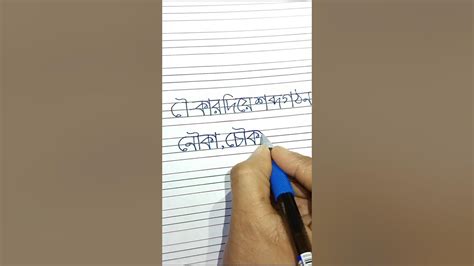 ৌ কার দিয়ে শব্দ গঠন
নৌকা, চৌক